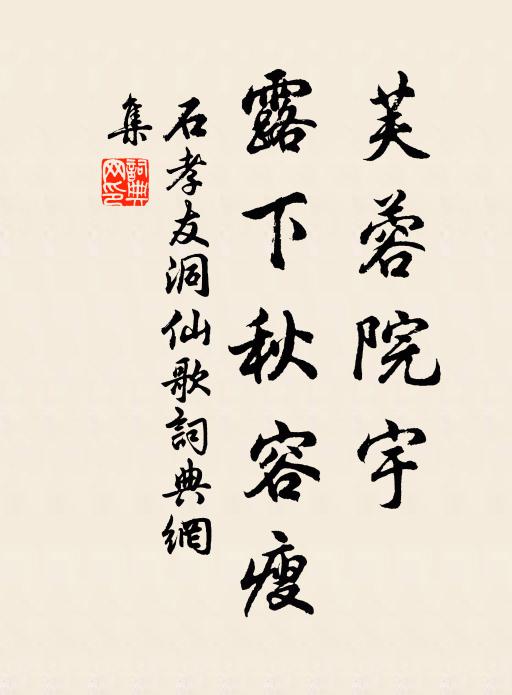 芙蓉院宇
露下秋容瘦
石孝友洞仙歌詞典網
集
詞典
网印